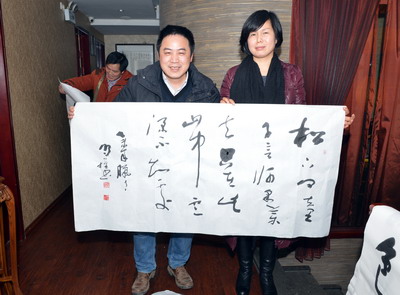 松下问童
子言师采药
去只在此
山中云
深不知处
色